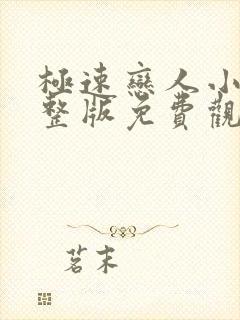 極速戀人小
整版免費觀
茗末